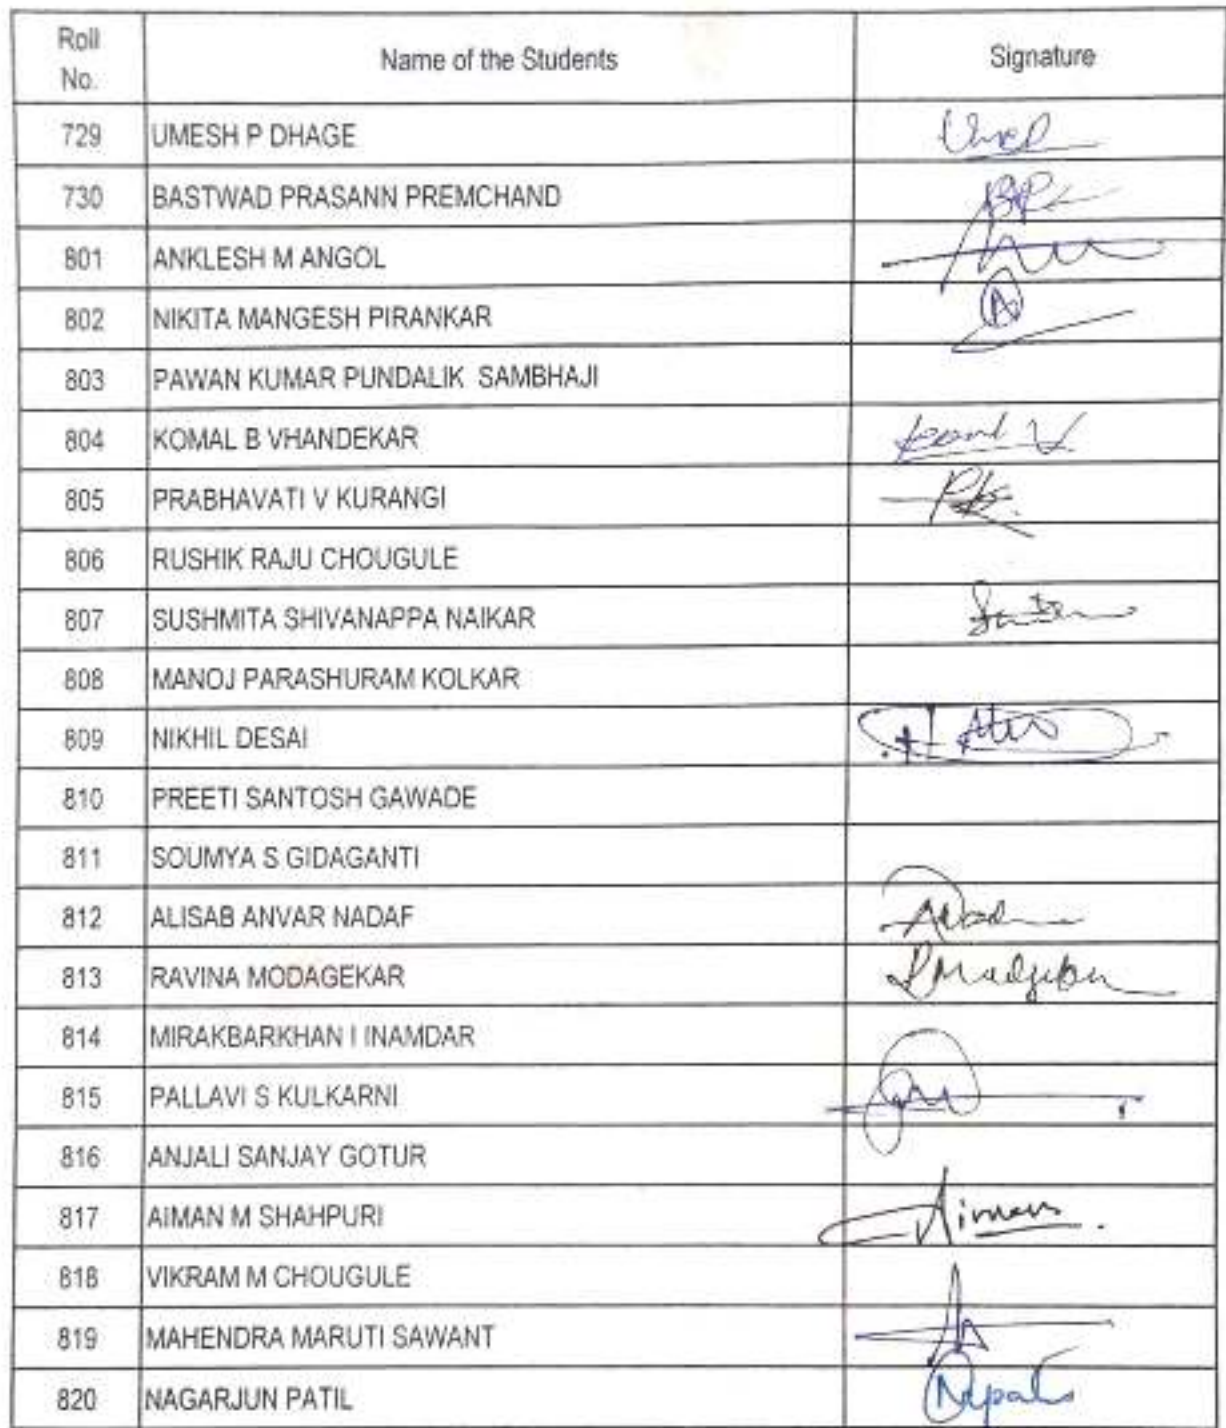 Roll No. Name of the Students Signature
729 UMESH P DHAGE
730 BASTWAD PRASANN PREMCHAND
801 ANKLESH M ANGOL
802 NIKITA MANGESH PIRANKAR
803 PAWAN KUMAR PUNDALIK SAMBHAJI
804 KOMAL B VHANDEKAR
805 PRABHAVATI V KURANGI
806 RUSHIK RAJU CHOUGULE
807 SUSHMITA SHIVANAPPA NAIKAR
808 MANOJ PARASHURAM KOLKAR
809 NIKHIL DESAI
810 PREETI SANTOSH GAWADE
811 SOUMYA S GIDAGANTI
812 ALISAB ANVAR NADAF
813 RAVINA MODAGEKAR
814 MIRAKBARKHAN I INAMDAR
815 PALLAVI S KULKARNI
816 ANJALI SANJAY GOTUR
817 AIMAN M SHAHPURI Aiman
818 VIKRAM M CHOUGULE
819 MAHENDRA MARUTI SAWANT
820 NAGARJUN PATIL